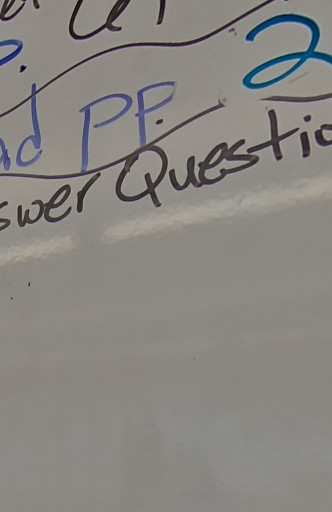 P.
ad PP. 2
swer Questio